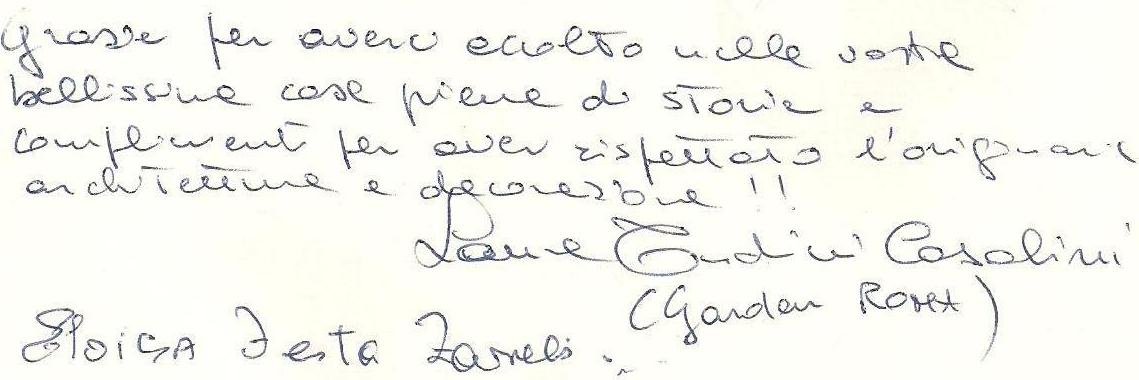 Grazie per averci accolto nelle vostre
bellissime case piene di storia e
complimenti per aver rispettato l'originaria
architettura e decorazione !!
Laura Tudini Casalini
(Garden ROMA)
Eloisa Testa